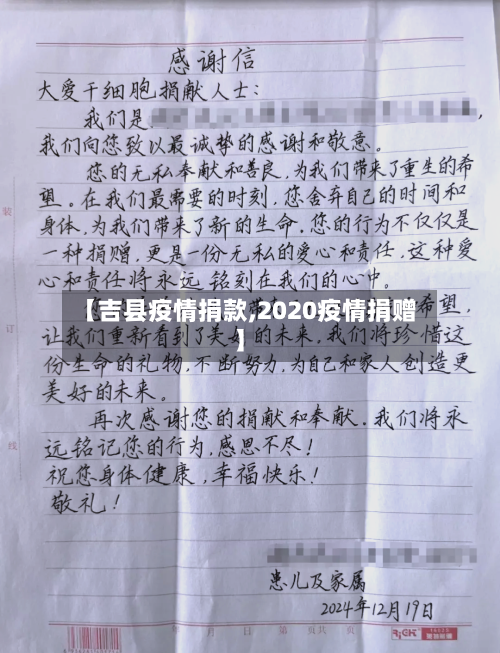 感谢信
大爱干细胞捐献人士:
我们是
我们向您致以最诚挚的感谢和敬意。
您的无私奉献和善良,为我们带来了重生的希
望。在我们最需要的时刻,您舍弃自己的时间和
身体,为我们带来了新的生命,您的行为不仅仅是
一种捐赠,更是一份无私的爱心和责任,这种爱
心和责任将永远铭刻在我们的心中。
【吉县疫情捐款,2020疫情捐赠
】
希望,
让我们重新看到了美好的未来,我们将珍惜这
份生命的礼物,不断努力,为自己和家人创造更
美好的未来。
再次感谢您的捐献和奉献.我们将永
远铭记您的行为,感恩不尽!
祝您身体健康,幸福快乐!
敬礼!
患儿及家属
2024年12月19日
装
订
线
年 月 日 第 页共 页